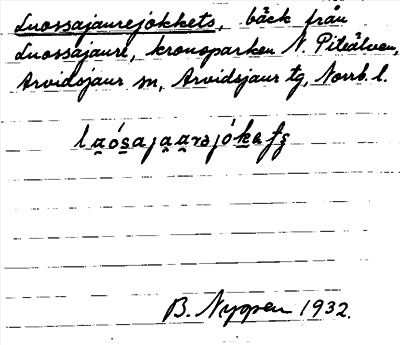 Luossajaurejokkets, bäck från
Luossajaure, kronoparken N. Piteälven,
Arvidsjaur sn, Arvidsjaur tg, Norrb. l.
B. Nyman 1932.